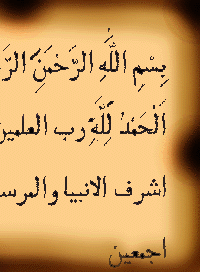 بِسْمِ اللَّهِ الرَّحْمَنِ
اَلْحَمْدُ لِلَّهِ رب العلمين
اشرف الانبيا والمرس
اجمعين